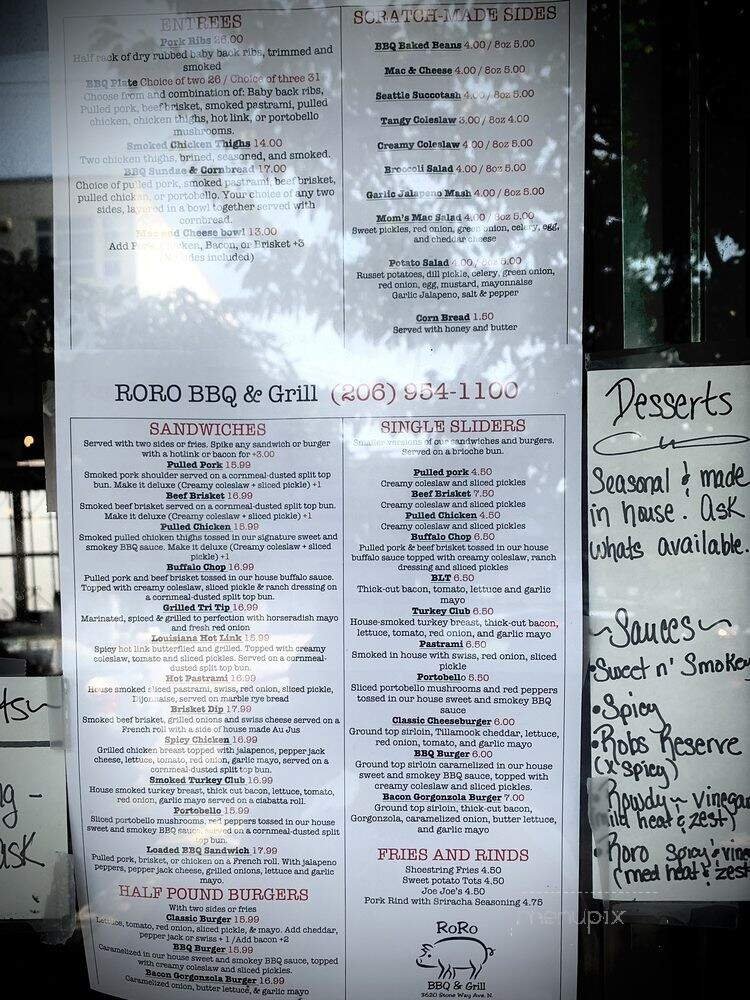 ENTREES
Pork Ribs 26.00
Half rack of dry rubbed baby back ribs, trimmed and
smoked
BBQ Plate Choice of two 26 / Choice of three 31
Choose from and combination of: Baby back ribs,
Pulled pork, beef brisket, smoked pastrami, pulled
chicken, chicken thighs, hot link, or portobello
mushrooms.
Smoked Chicken Thighs 14.00
Two chicken thighs, brined, seasoned, and smoked.
BBQ Sundae & Cornbread 17.00
Choice of pulled pork, smoked pastrami, beef brisket,
pulled chicken, or portobello. Your choice of any two
sides, layered in a bowl together served with
cornbread.
Mac and Cheese bowl 13.00
Add Pork, Chicken, Bacon, or Brisket +3
included)
SCRATCH-MADE SIDES
BBQ Baked Beans 4.00 / 8oz 5.00
Mac & Cheese 4.00 / 8oz 5.00
Seattle Succotash 4.00 / 8oz 5.00
Tangy Coleslaw 3.00 / 8oz 4.00
Creamy Coleslaw 4.00 / 8oz 5.00
Broccoli Salad 4.00 / 8oz 5.00
Garlic Jalapeno Mash 4.00 / 8oz 5.00
Mom's Mac Salad 4.00 / 8oz 5.00
Sweet pickles, red onion, green onion, celery, egg,
and cheddar cheese
Potato Salad 4.00 / 8oz 5.00
Russet potatoes, dill pickle, celery, green onion,
red onion, egg, mustard, mayonnaise
Garlic Jalapeno, salt & pepper
Corn Bread 1.50
Served with honey and butter
RORO BBQ & Grill (206) 954-1100
SANDWICHES
Served with two sides or fries. Spike any sandwich or burger
with a hotlink or bacon for +3.00
Pulled Pork 15.99
Smoked pork shoulder served on a cornmeal-dusted split top
bun. Make it deluxe (Creamy coleslaw + sliced pickle) +1
Beef Brisket 16.99
Smoked beef brisket served on a cornmeal-dusted split top bun.
Make it deluxe (Creamy coleslaw + sliced pickle) +1
Pulled Chicken 15.99
Smoked pulled chicken thighs tossed in our signature sweet and
smokey BBQ sauce. Make it deluxe (Creamy coleslaw + sliced
pickle) +1
Buffalo Chop 16.99
Pulled pork and beef brisket tossed in our house buffalo sauce.
Topped with creamy coleslaw, sliced pickle & ranch dressing on
a cornmeal-dusted split top bun.
Grilled Tri Tip 16.99
Marinated, spiced & grilled to perfection with horseradish mayo
and fresh red onion
Louisiana Hot Link 15.99
Spicy hot link butterflied and grilled. Topped with creamy
coleslaw, tomato and sliced pickles. Served on a cornmeal-
dusted split top bun.
Hot Pastrami 16.99
House smoked sliced pastrami, swiss, red onion, sliced pickle,
Dijonnaise, served on marble rye bread
Brisket Dip 17.99
Smoked beef brisket, grilled onions and swiss cheese served on a
French roll with a side of house made Au Jus
Spicy Chicken 16.99
Grilled chicken breast topped with jalapenos, pepper jack
cheese, lettuce, tomato, red onion, garlic mayo, served on a
cornmeal-dusted split top bun.
Smoked Turkey Club 16.99
House smoked turkey breast, thick cut bacon, lettuce, tomato,
red onion, garlic mayo served on a ciabatta roll.
Portobello 15.99
Sliced portobello mushrooms, red peppers tossed in our house
sweet and smokey BBQ sauce, served on a cornmeal-dusted split
top bun.
Loaded BBQ Sandwich 17.99
Pulled pork, brisket, or chicken on a French roll. With jalapeno
peppers, pepper jack cheese, grilled onions, lettuce and garlic
mayo.
HALF POUND BURGERS
With two sides or fries
Classic Burger 15.99
Lettuce, tomato, red onion, sliced pickle, & mayo. Add cheddar,
pepper jack or swiss + 1 /Add bacon +2
BBQ Burger 15.99
Caramelized in our house sweet and smokey BBQ sauce, topped
with creamy coleslaw and sliced pickles.
Bacon Gorgonzola Burger 16.99
Caramelized onion, butter lettuce, & garlic mayo
SINGLE SLIDERS
Smaller versions of our sandwiches and burgers.
Served on a brioche bun.
Pulled pork 4.50
Creamy coleslaw and sliced pickles
Beef Brisket 7.50
Creamy coleslaw and sliced pickles
Pulled Chicken 4.50
Creamy coleslaw and sliced pickles
Buffalo Chop 6.50
Pulled pork & beef brisket tossed in our house
buffalo sauce topped with creamy coleslaw, ranch
dressing and sliced pickles
BLT 6.50
Thick-cut bacon, tomato, lettuce and garlic
mayo
Turkey Club 6.50
House-smoked turkey breast, thick-cut bacon,
lettuce, tomato, red onion, and garlic mayo
Pastrami 6.50
Smoked in house with swiss, red onion, sliced
pickle
Portobello 5.50
Sliced portobello mushrooms and red peppers
tossed in our house sweet and smokey BBQ
sauce
Classic Cheeseburger 6.00
Ground top sirloin, Tillamook cheddar, lettuce,
red onion, tomato, and garlic mayo
BBQ Burger 6.00
Ground top sirloin caramelized in our house
sweet and smokey BBQ sauce, topped with
creamy coleslaw and sliced pickles.
Bacon Gorgonzola Burger 7.00
Ground top sirloin, thick-cut bacon,
Gorgonzola, caramelized onion, butter lettuce,
and garlic mayo
FRIES AND RINDS
Shoestring Fries 4.50
Sweet potato Tots 4.50
Joe Joe's 4.50
Pork Rind with Sriracha Seasoning 4.75
RoRo
BBQ & Grill
3620 Stone Way Ave. N.
menupix
Desserts
Seasonal & made
in house! Ask
whats available.
~Sauces~
•Sweet n' Smokey
•Spicy
•Robs Reserve
(x spicy)
•Rowdy - vinegar
mild heat & zest
•Roro spicy vine
(med heat & zest
ask